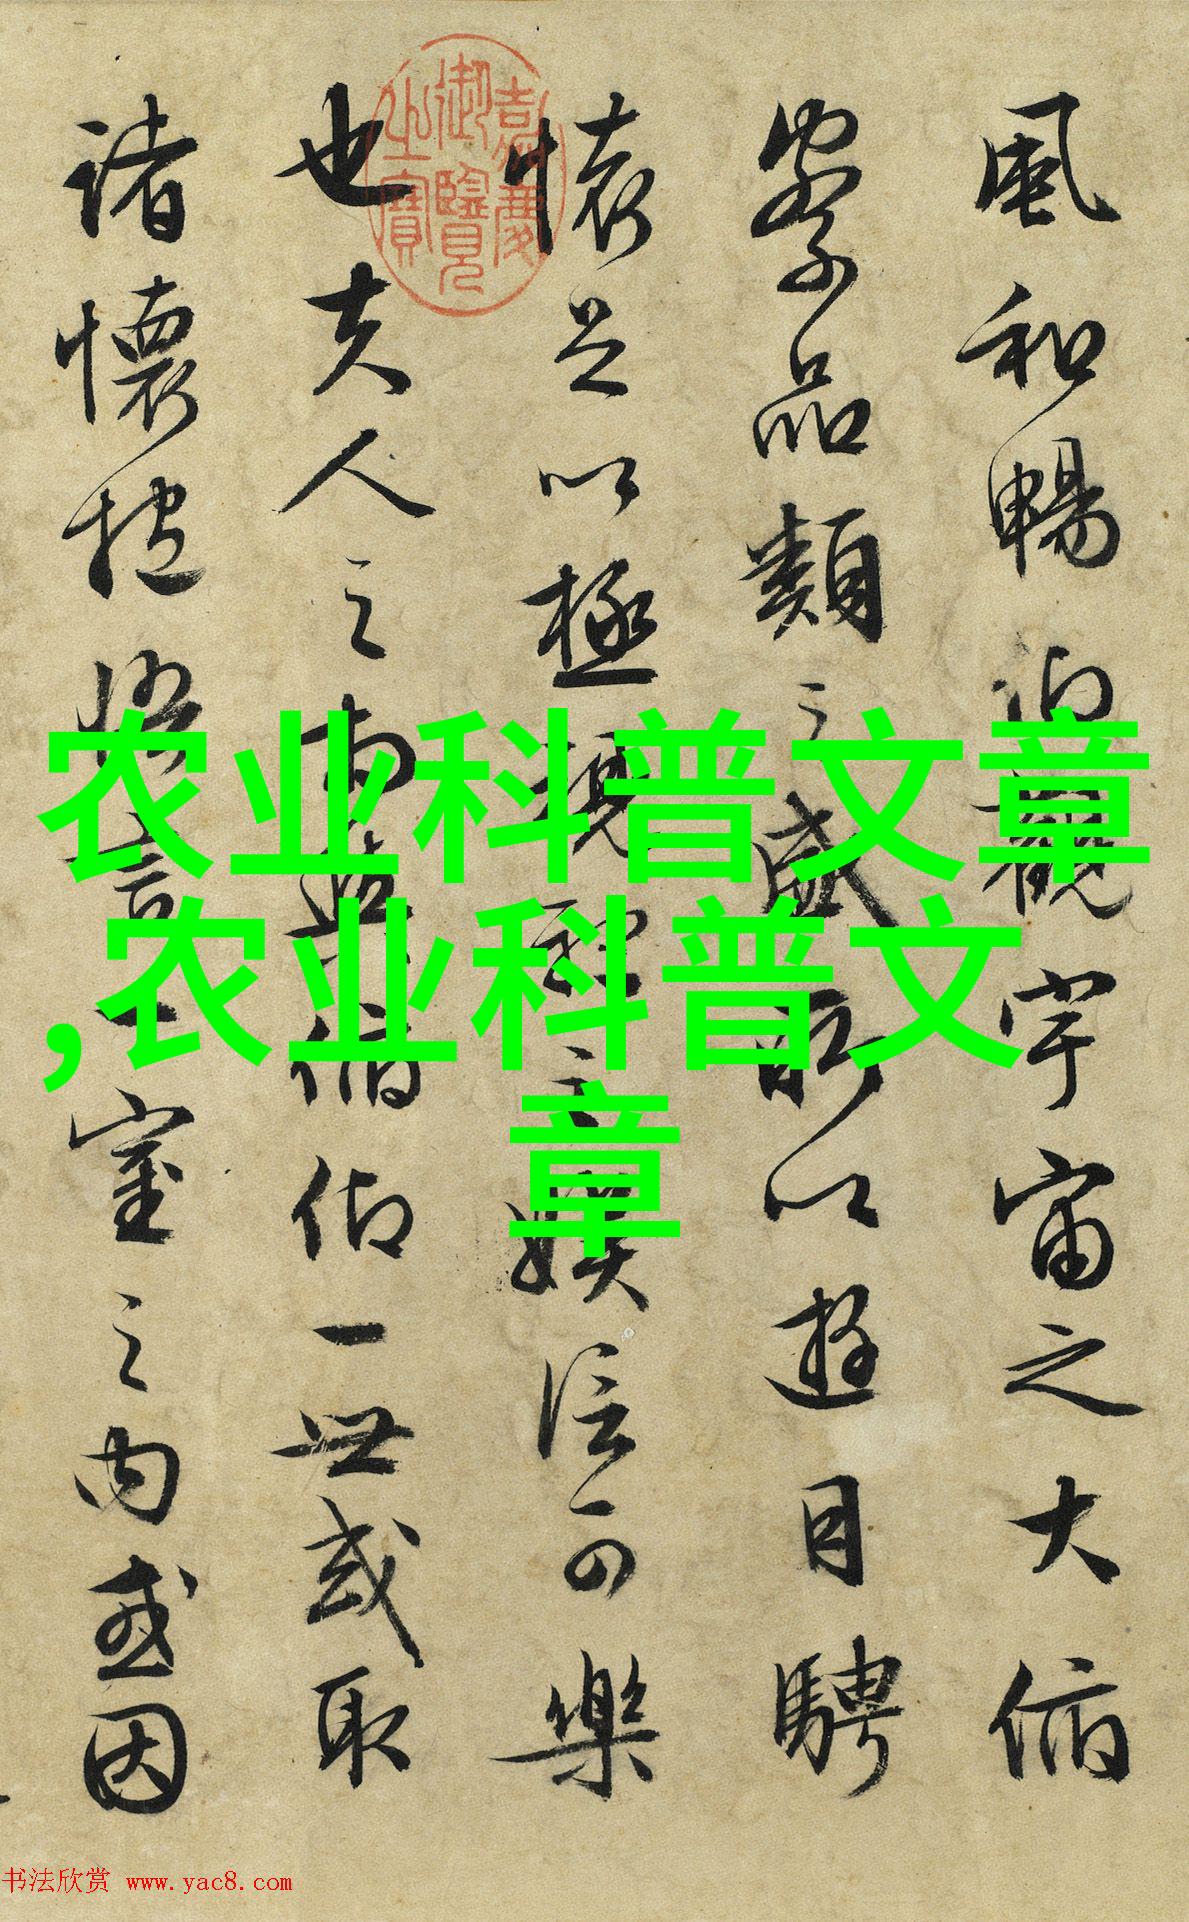 風和暢仰觀宇宙之大俯
察品類之盛所以遊目騁
懷足以極視聽之娛信可樂
也夫人之相與俯仰一世或取
諸懷抱悟言一室之內或因
嘉慶
御覽
之寶
农业科普文章
,农业科普文
章
书法欣赏 www.yac8.com